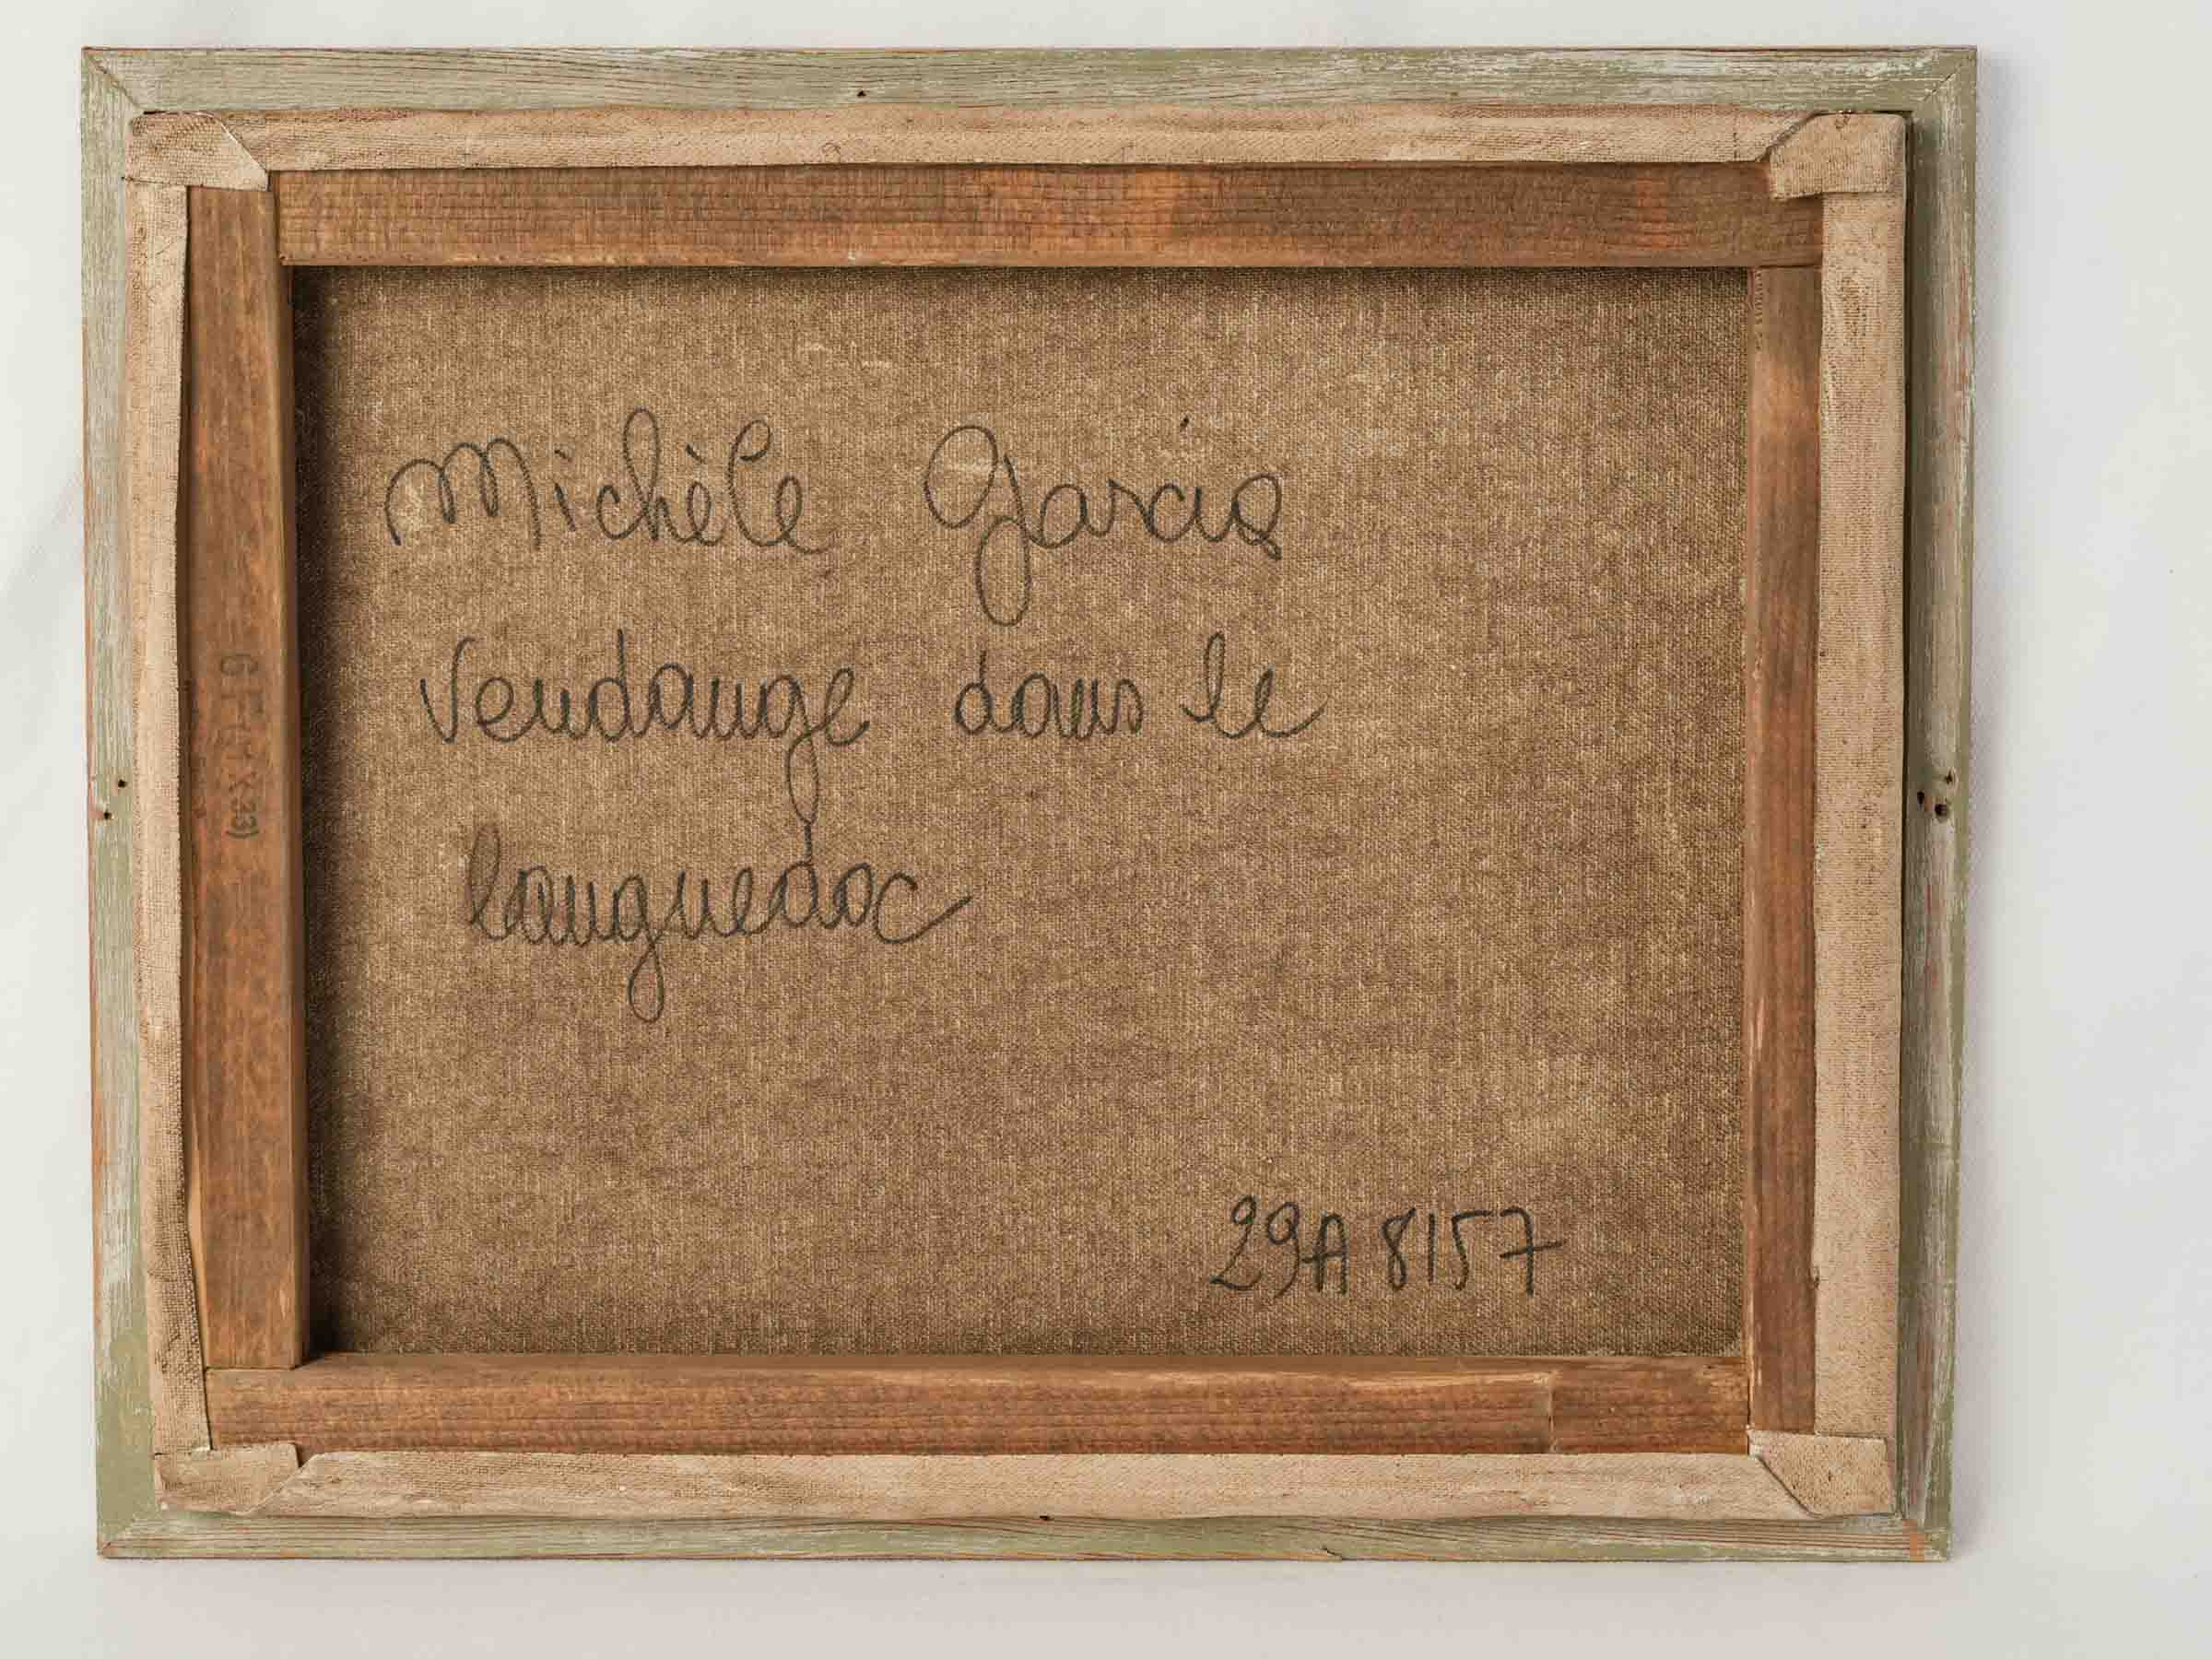 Michèle Garcia
Vendange dans le
languedoc
29A 8157